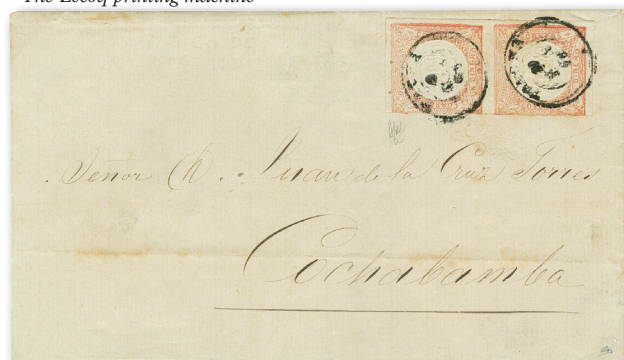 The Lecoq printing machine
Señor D. Juan de la Cruz Torres
Cochabamba